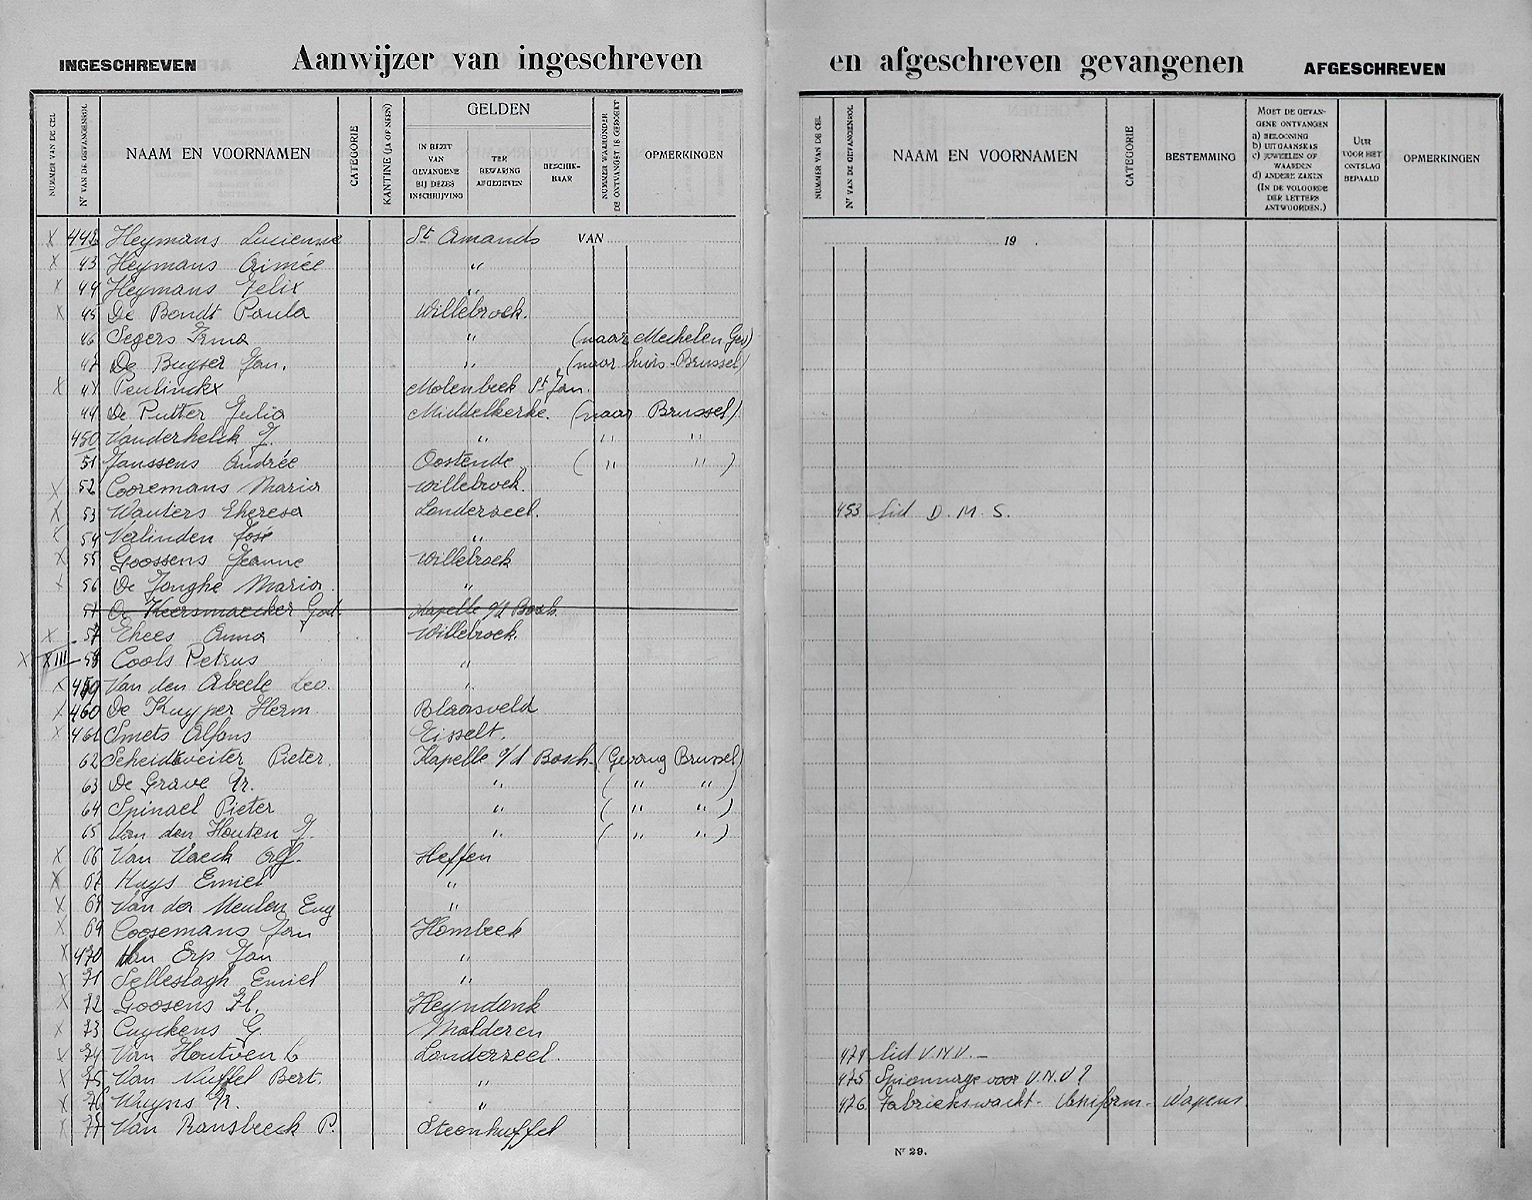 INGESCHREVEN Aanwijzer van ingeschreven en afgeschreven gevangenen AFGESCHREVEN
NUMMER VAN DE CEL
Nr VAN DE GEVANGENROL
NAAM EN VOORNAMEN
CATEGORIE
KANTINE (JA OF NEEN)
GELDEN
IN BEZIT VAN GEVANGENE BIJ DEZES INSCHRIJVING
TER BEWARING AFGEGEVEN
BESCHIKBAAR
NUMMER WAARONDER DE ONTVANGST IS GEBOEKT
OPMERKINGEN
NUMMER VAN DE CEL
Nr VAN DE GEVANGENROL
NAAM EN VOORNAMEN
CATEGORIE
BESTEMMING
MOET DE GEVANGENE ONTVANGEN
a) BELOONING
b) UITGAANSKAS
c) JUWEELEN OF WAARDEN
d) ANDERE ZAKEN
(IN DE VOLGORDE DER LETTERS ANTWOORDEN.)
UUR VOOR HET ONTSLAG BEPAALD
OPMERKINGEN
X 442 Heymans Lucienne St Amands VAN 19 .
X 43 Heymans Aimée "
X 44 Heymans Felix "
X 45 De Bondt Paula Willebroek.
46 Segers Irma " (naar Mechelen Gev)
47 De Buyser Jan. " (naar huis-Brussel)
X 48 Peulinckx Molenbeek St Jan.
49 De Putter Julia Middelkerke. (naar Brussel)
450 Vanderhelck J. " " "
51 Janssens Andrée Oostende ( " " )
X 52 Cooremans Maria Willebroek.
X 53 Wauters Theresa Londerzeel. 453 Lid D.M.S.
X 54 Verlinden José "
X 55 Goossens Jeanne Willebroek
X 56 De Jonghe Maria. "
57 De Keersmaecker God Kapelle o/d Bosch
X 57 Thees Anna Willebroek.
X XIII 58 Cools Petrus "
X 459 Van den Abeele Leo. "
X 460 De Kuyper Herm. Blaasveld
X 461 Smets Alfons Tisselt.
62 Scheidtweiler Pieter. Kapelle o/d Bosch- (Gevang Brussel)
63 De Grave Fr. " ( " " )
64 Spinael Pieter " ( " " )
65 Van den Houten J. " ( " " )
X 66 Van Vaeck Alf. Heffen
X 67 Huys Emiel "
X 68 Van der Meulen Eug "
X 69 Coosemans Jan Hombeek
X 470 Van Erp Jan "
X 71 Sellestagh Emiel "
X 72 Goosens Fl. Heyndonk
X 73 Cuyckens G Malderen
X 74 Van Houtven C Londerzeel 474 Lid V.N.V.-
X 75 Van Nuffel Bert. " 475 Spionnage voor V.N.V?
X 76 Kuyns Fr. " 476 Fabriekswacht- Uniform- Wapens
X 77 Van Ransbeeck P. Steenhuffel
Nr 29.